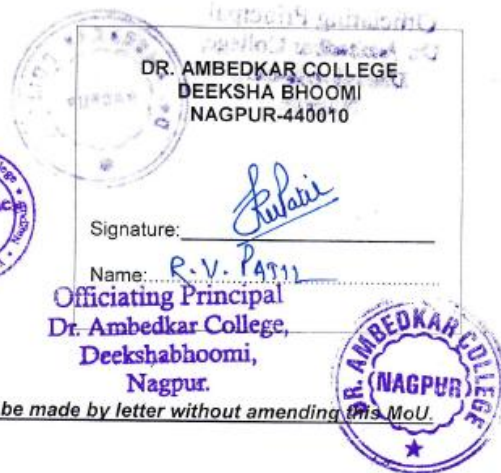 DR. AMBEDKAR COLLEGE
DEEKSHA BHOOMI
NAGPUR-440010
Signature:
Name: R.V. PATIL
Officiating Principal
Dr. Ambedkar College,
Deekshabhoomi,
Nagpur.
be made by letter without amending this MoU.
DR. AMBEDKAR COLLEGE
NAGPUR